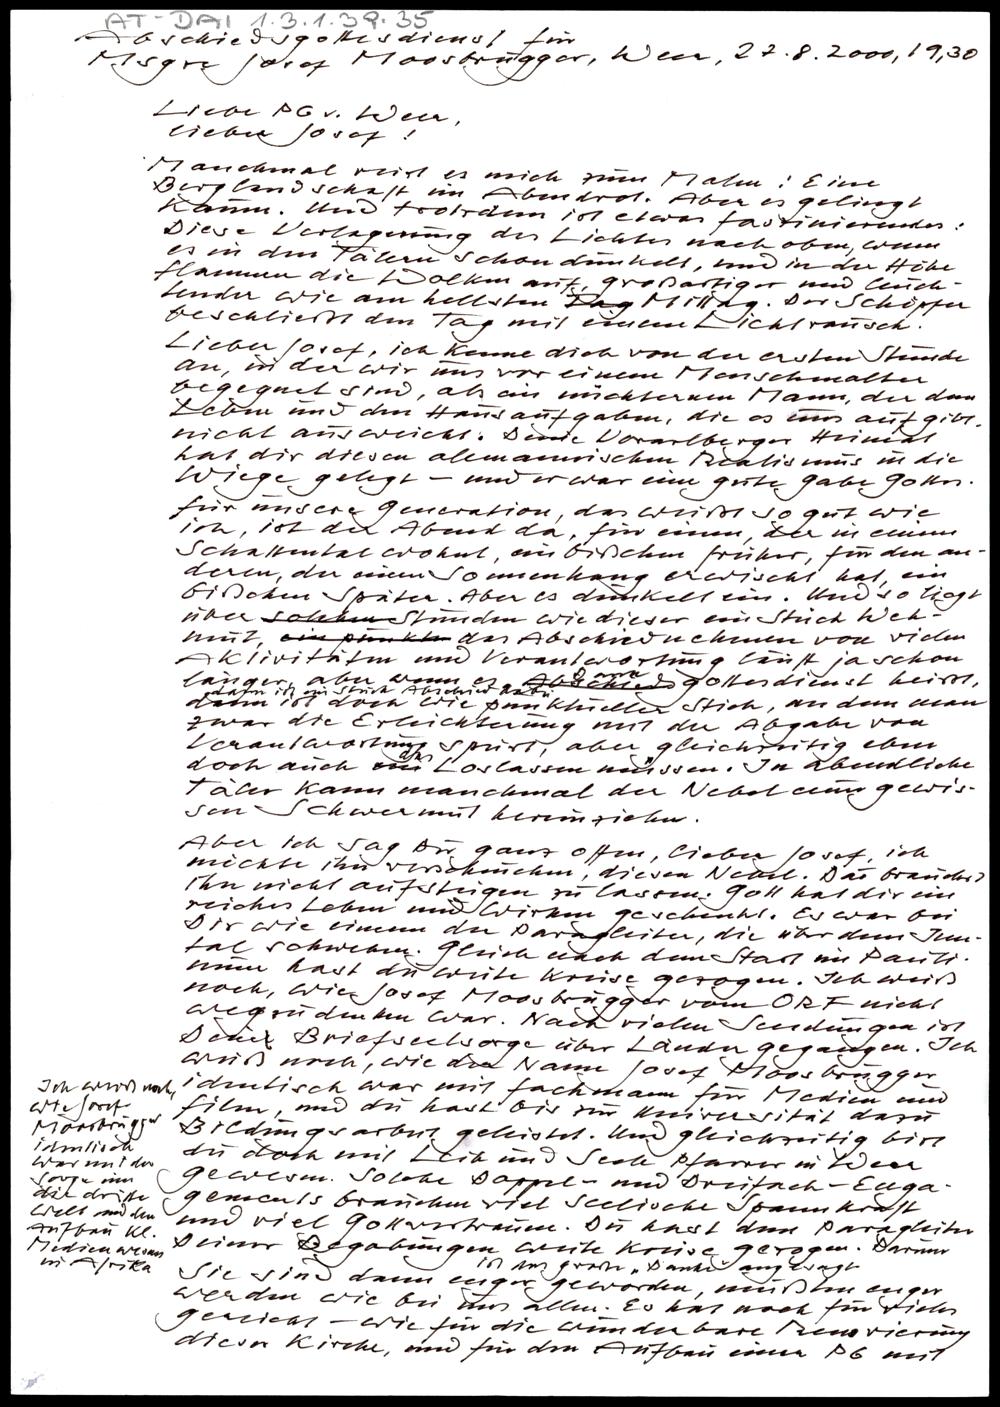 AT-DAI 1.3.1.39.35
Abschiedsgottesdienst für
Msgre Josef Moosbrugger, Weer, 27.8.2000, 19,30
Liebe PG v. Weer,
lieber Josef!
Manchmal reizt es mich zum Malen: Eine
Berglandschaft im Abendrot. Aber es gelingt
kaum. Und trotzdem ist etwas faszinierendes:
Diese Verlagerung des Lichtes nach oben, wenn
es in den Tälern schon dunkelt, und in der Höhe
flammen die Wolken auf, großartiger und leuch-
tender wie am hellsten Tag Mittag. Der Schöpfer
beschließt den Tag mit einem Lichtrausch.
Lieber Josef, ich kenne dich von der ersten Stunde
an, in der wir uns vor einem Menschenalter
begegnet sind, als ein nüchternen Mann, der dem
Leben und den Hausaufgaben, die es uns aufgibt,
nicht ausweicht. Deine Vorarlberger Heimat
hat dir diesen alemannischen Realismus in die
Wiege gelegt – und er war eine gute Gabe Gottes.
Für unsere Generation, das weißt so gut wie
ich, ist der Abend da, für einen, der in einem
Schattental wohnt, ein bißchen früher, für den an-
deren, der einen Sonnenhang erwischt hat, ein
bißchen später. Aber es dunkelt ein. Und so liegt
über solchen Stunden wie dieser ein Stück Weh-
mut, ein punktu das Abschiednehmen von vielen
Aktivitäten und Verantwortung läuft ja schon
länger, aber wenn es Abschieds gottesdienst heißt,
dann ist ein Stück Abschied dabei
dann ist doch wie punktueller Stich, an dem man
zwar die Erleichterung mit der Abgabe von
Verantwortung spürt, aber gleichzeitig eben
doch auch ein das Loslassen müssen. In abendliche
Täler kann manchmal der Nebel einer gewis-
sen Schwermut hereinziehen.
Aber ich sag Dir ganz offen, lieber Josef, ich
möchte ihn verscheuchen, diesen Nebel. Du brauchst
ihn nicht aufsteigen zu lassen. Gott hat dir ein
reiches Leben und Wirken geschenkt. Es war bei
Dir wie einem der Paragleiter, die über dem Inn-
tal schweben. Gleich nach dem Start im Pauli-
num hast du weite Kreise gezogen. Ich weiß
noch, wie Josef Moosbrugger vom ORF nicht
wegzudenken war. Nach vielen Sendungen ist
Deine Briefseelsorge über Länder gegangen. Ich
weiß noch, wie der Name Josef Moosbrugger
identisch war mit Fachmann für Medien und
Film, und du hast bis zur Universität dazu
Bildungsarbeit geleistet. Und gleichzeitig bist
du doch mit Leib und Seele Pfarrer in Weer
gewesen. Solche Doppel- und Dreifach-Enga-
gements brauchen viel seelische Spannkraft
und viel Gottvertrauen. Du hast dem Paragleiter
Deiner Begabungen weite Kreise gezogen. Darum
ist das große „Danke" angesagt
Sie sind dann enger geworden, mußten enger
werden wie bei uns allen. Es hat noch für vieles
gereicht – wie für die wunderbare Renovierung
dieser Kirche, und für den Aufbau einer PG mit
Ich weiß noch,
wie Josef
Moosbrugger
identisch
war mit der
Sorge um
die dritte
Welt und den
Aufbau kl.
Medienwesen
in Afrika